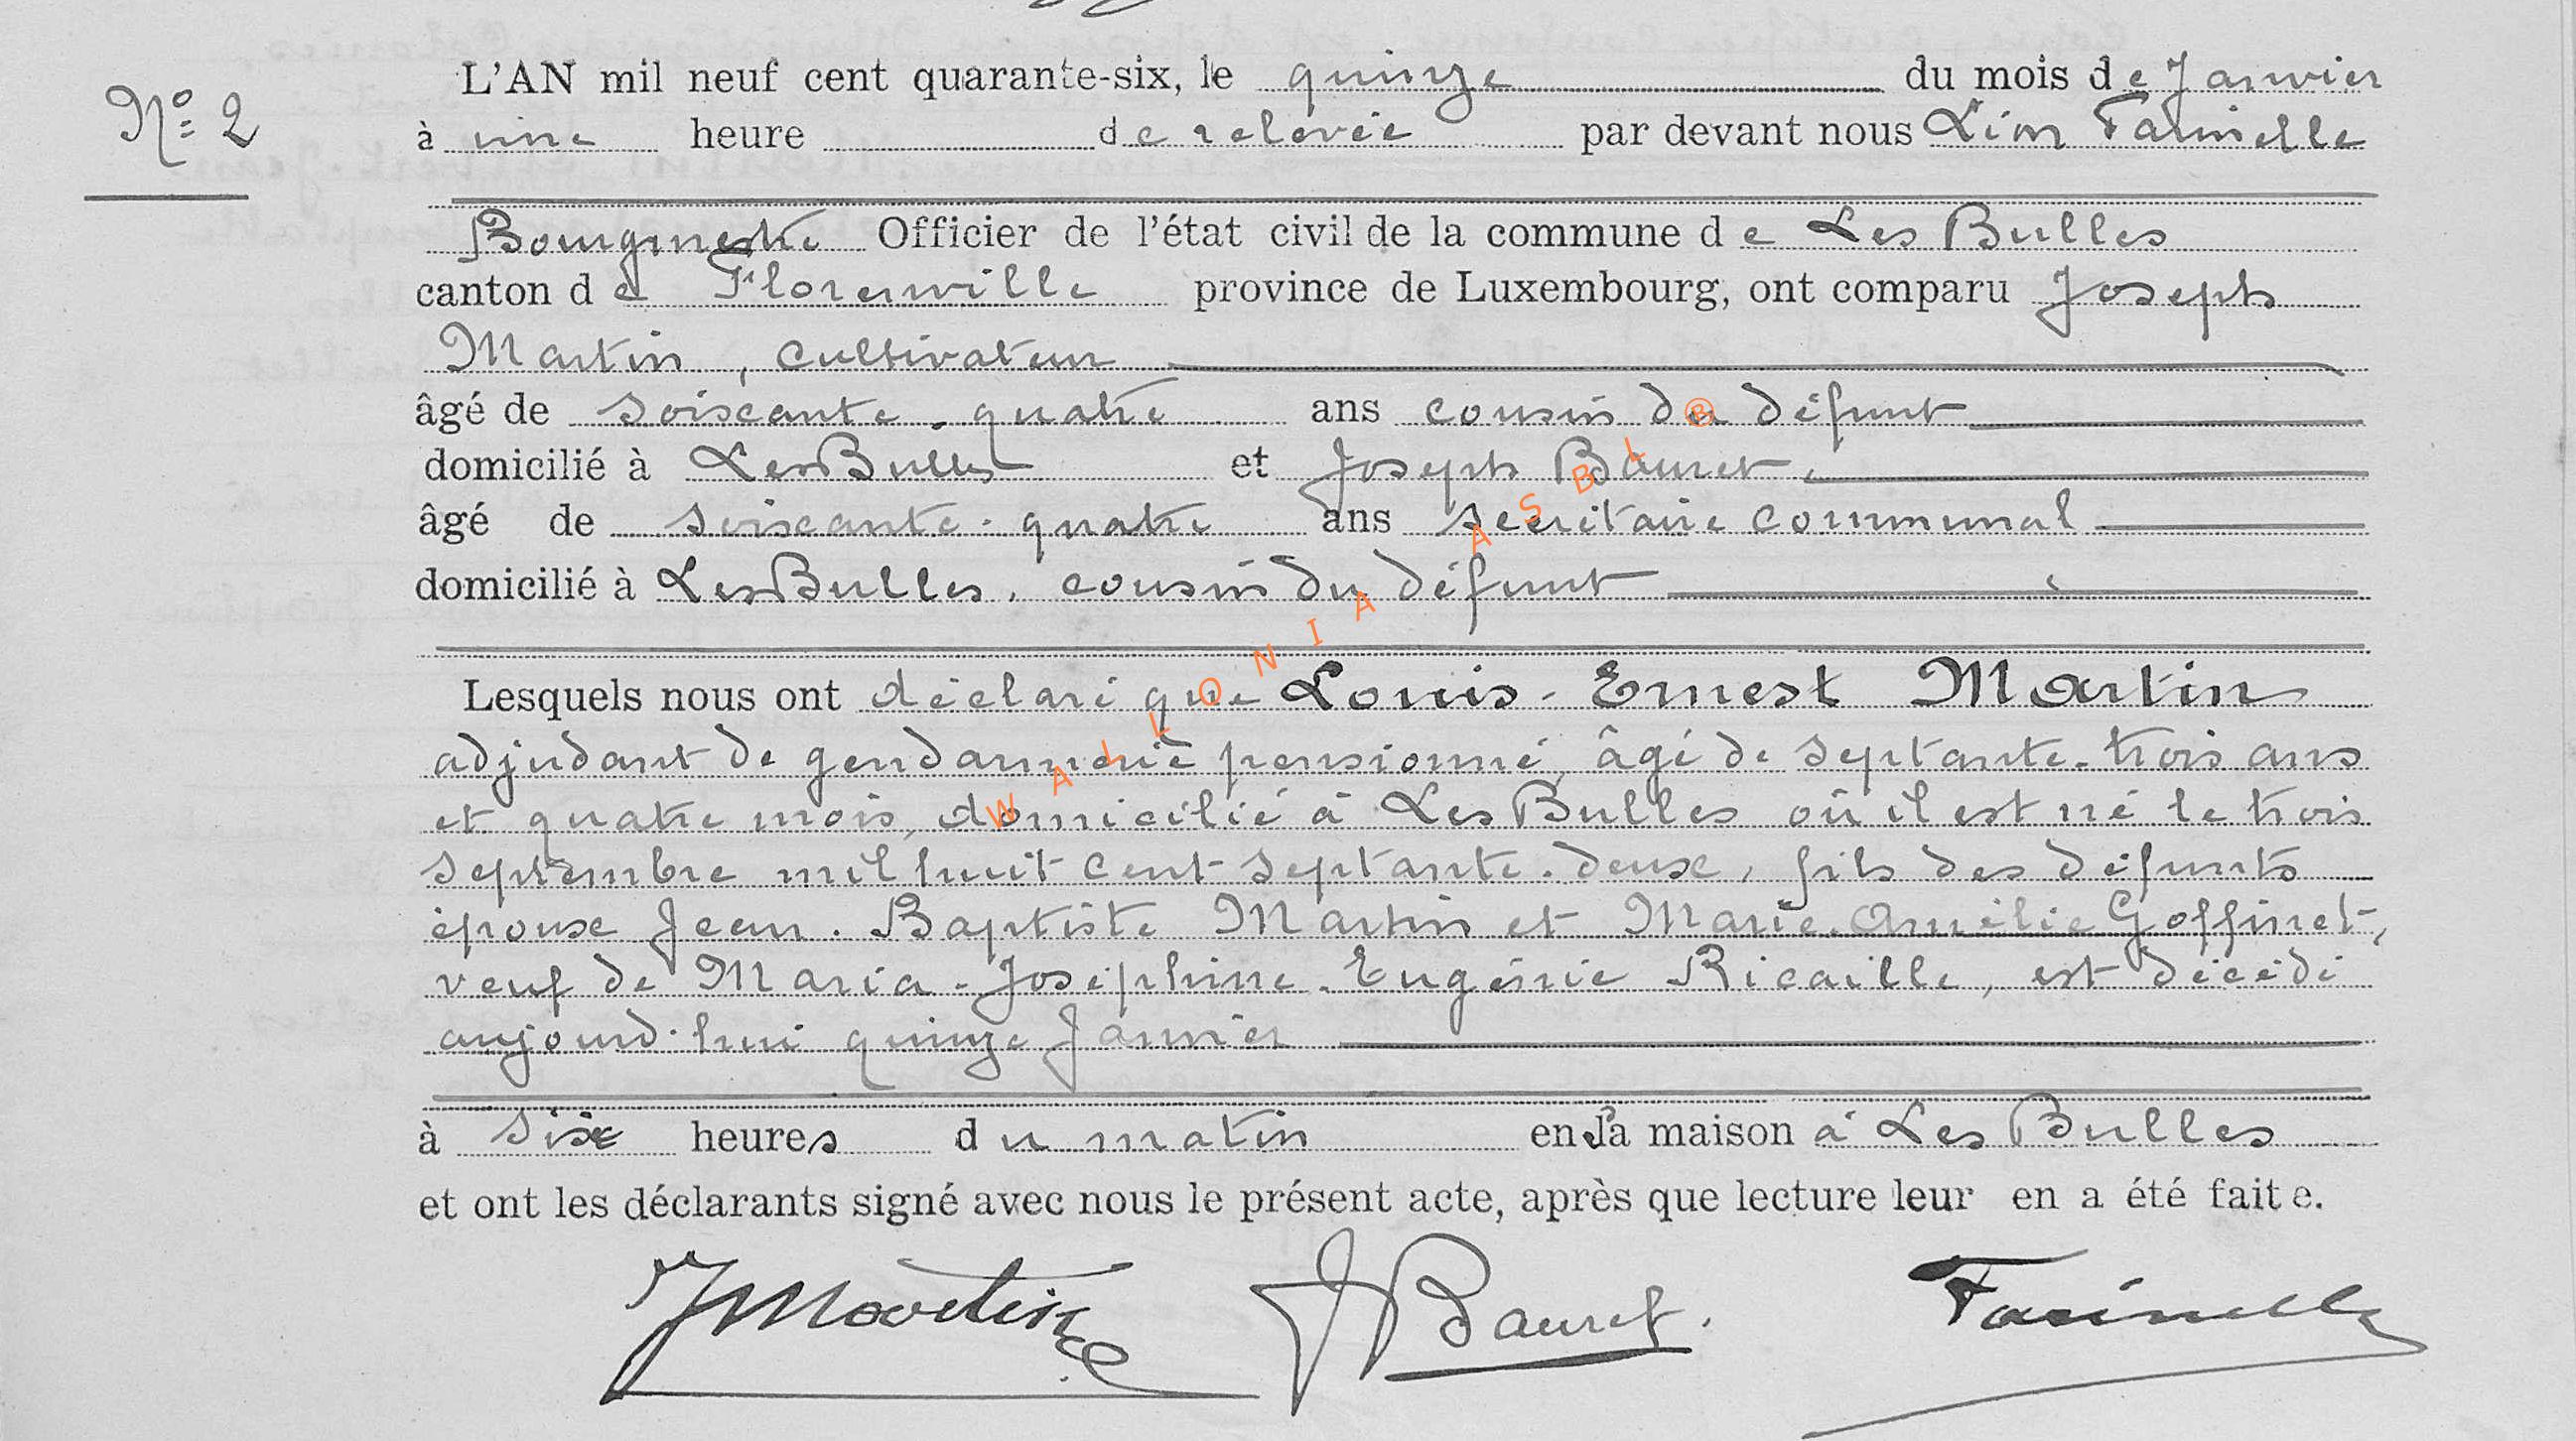 L'AN mil neuf cent quarante-six, le quinze du mois de Janvier
N° 2
à une heure de relevée par devant nous Léon Farinelle
Bourgmestre Officier de l'état civil de la commune de Les Bulles
canton de Florenville province de Luxembourg, ont comparu Joseph
Martin, cultivateur
âgé de soixante-quatre ans cousin du défunt
domicilié à Les Bulles et Joseph Bauret,
âgé de soixante-quatre ans secrétaire communal
domicilié à Les Bulles, cousin du défunt
Lesquels nous ont déclaré que Louis-Ernest Martin
adjudant de gendarmerie pensionné, âgé de septante-trois ans
et quatre mois, domicilié à Les Bulles où il est né le trois
septembre mil huit cent septante-deux, fils des défunts
époux Jean-Baptiste Martin et Marie-Amélie Goffinet,
veuf de Maria-Joséphine-Eugénie Ricaille, est décédé
aujourd'hui quinze Janvier
à six heures du matin en sa maison à Les Bulles
et ont les déclarants signé avec nous le présent acte, après que lecture leur en a été faite.
JMartin JBauret. Farinelle
WALLONIA ASBL ®